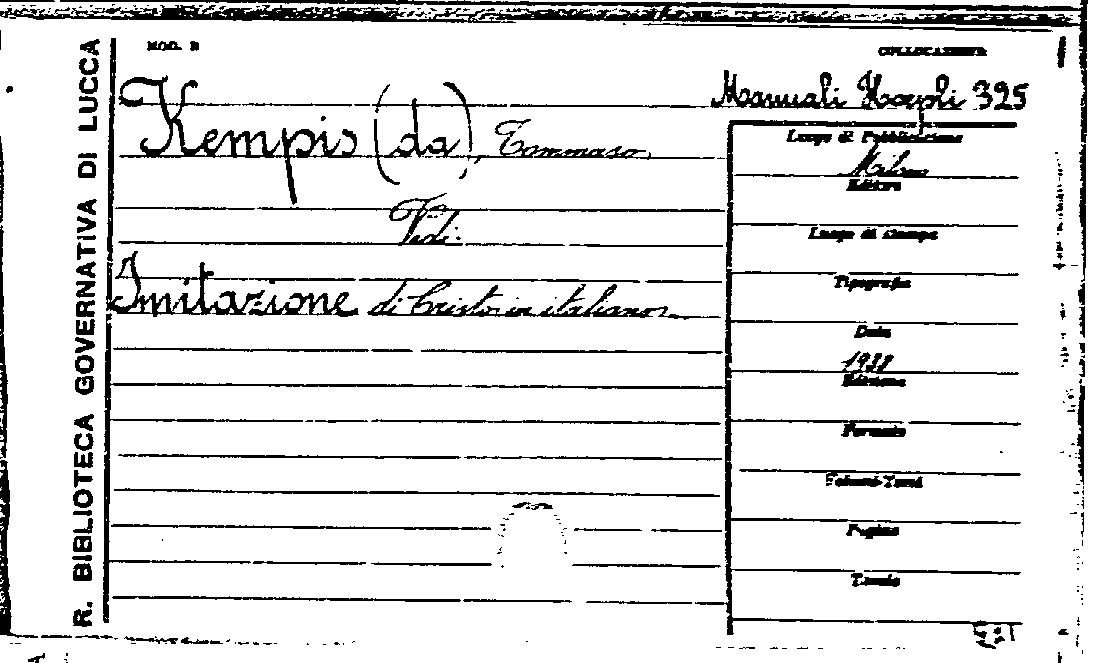 R. BIBLIOTECA GOVERNATIVA DI LUCCA
MOD. B
COLLOCAZIONE
Manuali Hoepli 325
Kempis (da), Tommaso
Vedi:
Imitazione di Cristo in italiano
Luogo di Pubblicazione
Milano
Editore
Luogo di Stampa
Tipografia
Data
Edizione
Formato
Volumi-Tomi
Pagine
Tavole